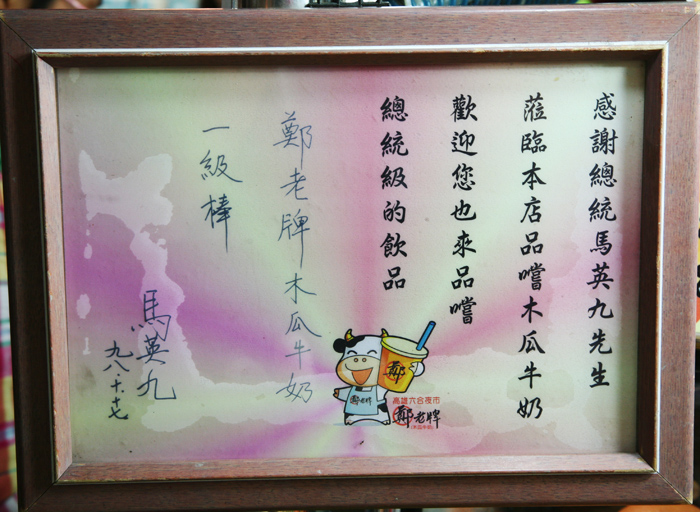 感謝總統馬英九先生
蒞臨本店品嚐木瓜牛奶
歡迎您也來品嚐
總統級的飲品
鄭老牌木瓜牛奶
一級棒
馬英九
九八.十.十七
鄭
鄭老牌
高雄六合夜市
鄭老牌